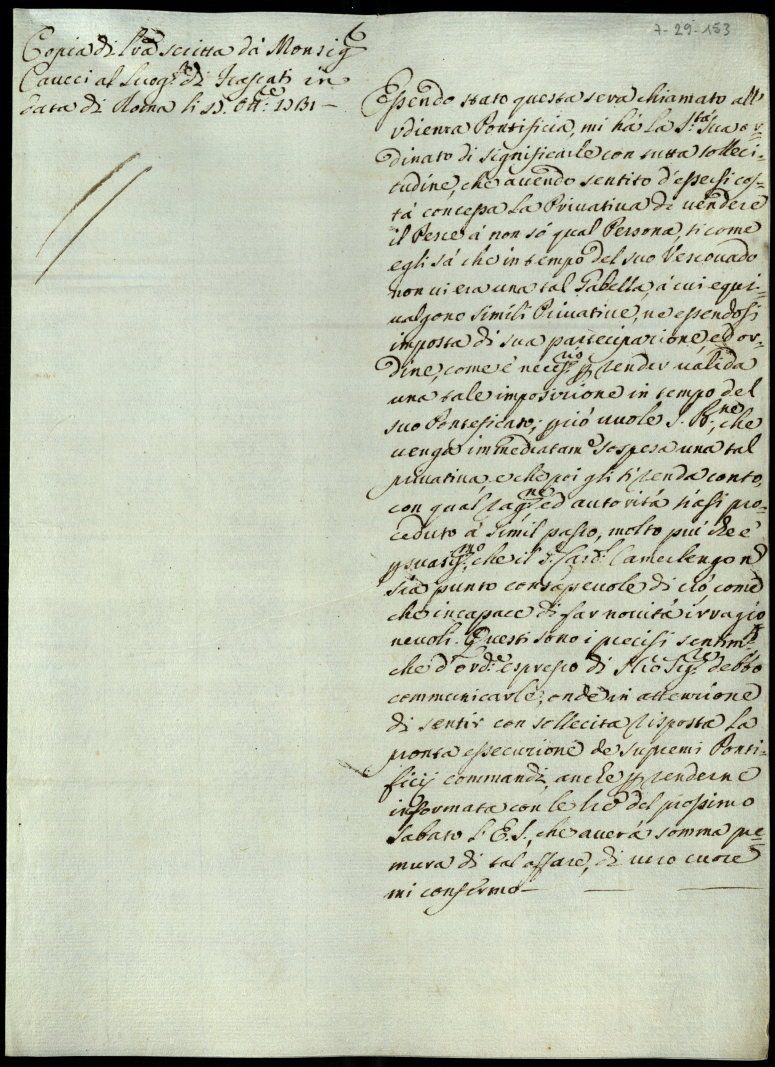 7-29-153
Copia di Lra scritta dà Monsig.r
Caucci al Luog.te di Frascati in
data di Roma li 17. Ott.e 1731 —
Essendo stato questa sera chiamato all'
Udienza Pontificia, mi hà la S.tà Sua or-
dinato di significarle con tutta solleci-
tudine, che avendo sentito d'essersi cos-
tà concessa la Privativa di vendere
il Pesce à non sò qual Persona, sicome
egli sà che in tempo del suo Vescovado
non vi era una tal Gabella, à cui equi-
valgono simili Privative, ne essendosi
imposta di sua partecipazione, ed or-
dine, come è necess.rio p render valida
una tale imposizione in tempo del
suo Pontificato; p ciò vuole S. B.ne, che
venga immediatam.e sospesa una tal
privativa, e che poi gli si renda conto,
con qual rag.ne, ed autorità siasi pro-
ceduto à simil passo, molto più che è
p suasiss.mo, che il S. Card. Camerlengo nō
sia punto consapevole di ciò, come
che incapace di far novità irragio
nevoli. Questi sono i precisi sentim.ti
che d'ord.e espresso di N̄ro Sig.re debbo
communicarle; onde in attenzione
di sentir con sollecita risposta la
pronta essecuzione de supremi Ponti-
ficij commandi, anche p renderne
informata con le l̄re del prossimo
Sabato S. E. S., che averà somma pre-
mura di tal affare, di vero cuore
mi confermo —